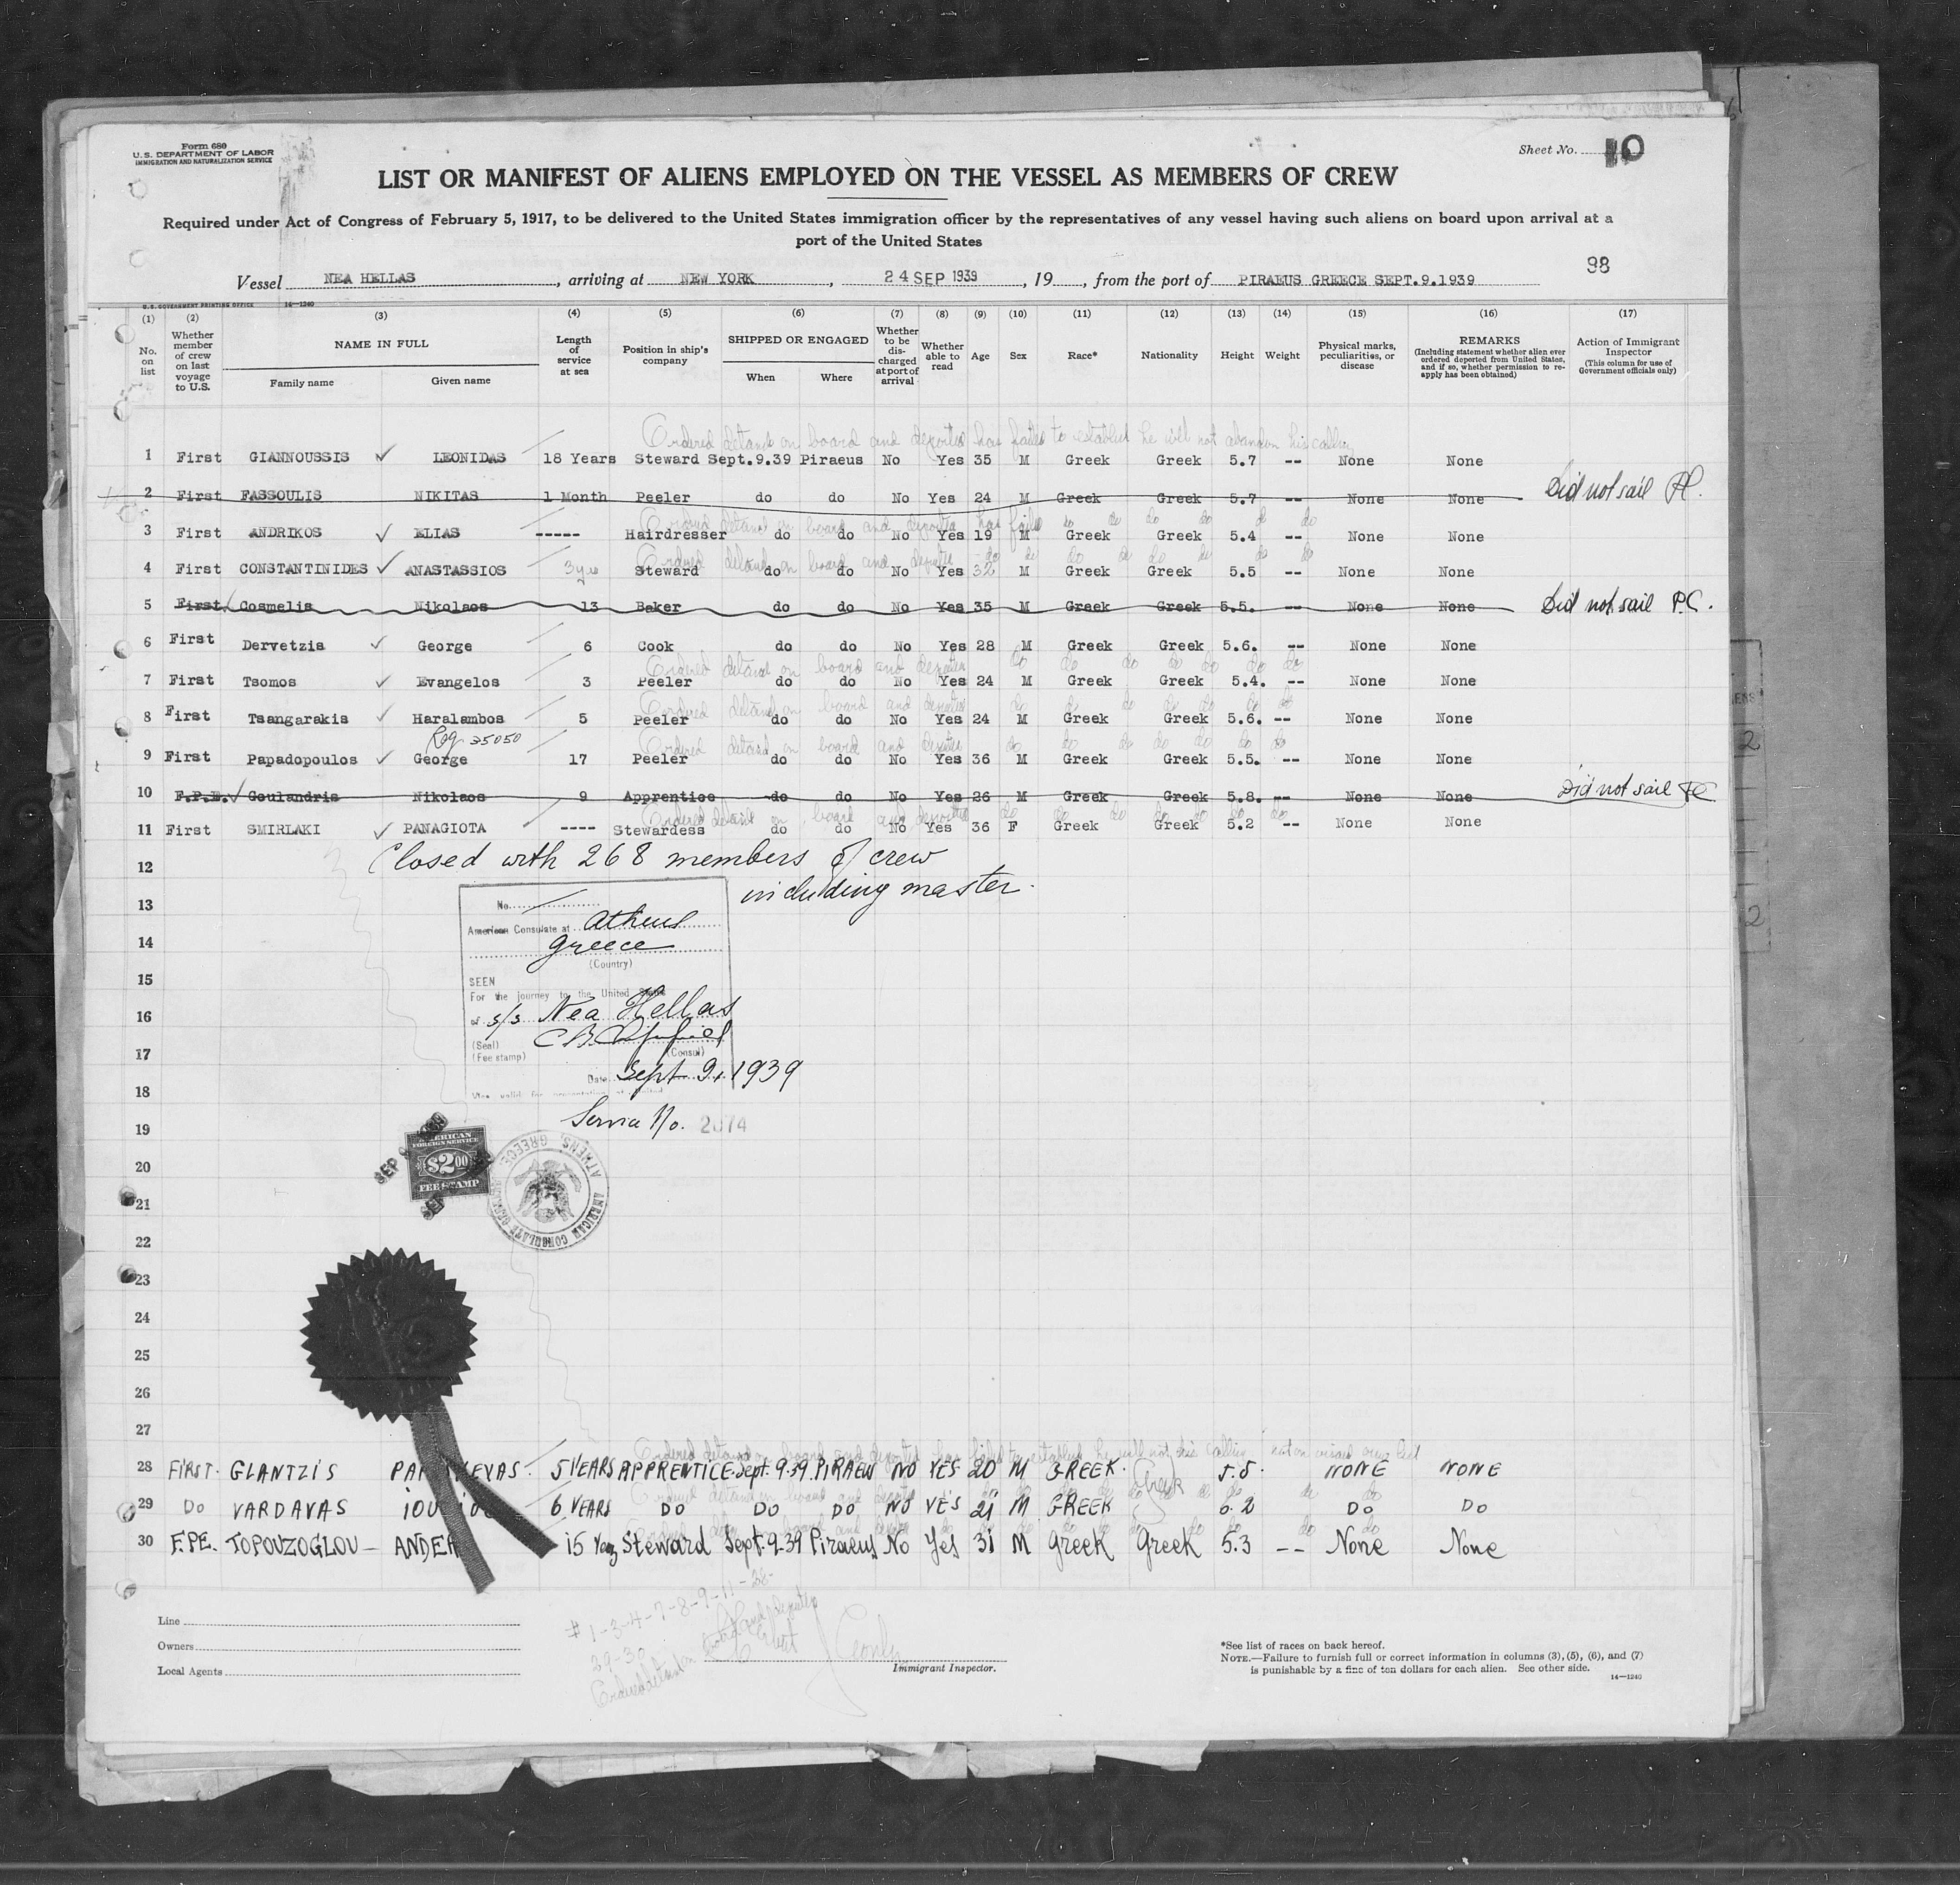 Form 680
U.S. DEPARTMENT OF LABOR
IMMIGRATION AND NATURALIZATION SERVICE
Sheet No. 10
LIST OR MANIFEST OF ALIENS EMPLOYED ON THE VESSEL AS MEMBERS OF CREW
Required under Act of Congress of February 5, 1917, to be delivered to the United States immigration officer by the representatives of any vessel having such aliens on board upon arrival at a
port of the United States
98
Vessel NEA HELLAS, arriving at NEW YORK, 24 SEP 1939, 19, from the port of PIRAEUS GREECE SEPT.9.1939
U.S. GOVERNMENT PRINTING OFFICE 14—1240
(1) (2) (3) (4) (5) (6) (7) (8) (9) (10) (11) (12) (13) (14) (15) (16) (17)
No. on list
Whether member of crew on last voyage to U.S.
NAME IN FULL
Family name Given name
Length of service at sea
Position in ship's company
SHIPPED OR ENGAGED
When Where
Whether to be discharged at port of arrival
Whether able to read
Age
Sex
Race*
Nationality
Height
Weight
Physical marks, peculiarities, or disease
REMARKS
(Including statement whether alien ever ordered deported from United States, and if so, whether permission to reapply has been obtained)
Action of Immigrant Inspector
(This column for use of Government officials only)
Ordered detained on board and deported has failed to establish he will not abandon his calling
1 First GIANNOUSSIS ✓ LEONIDAS 18 Years Steward Sept.9.39 Piraeus No Yes 35 M Greek Greek 5.7 -- None None
2 First FASSOULIS NIKITAS 1 Month Peeler do do No Yes 24 M Greek Greek 5.7 -- None None Did not sail
Ordered detained on board and deported has failed do do do do do do
3 First ANDRIKOS ✓ ELIAS ----- Hairdresser do do No Yes 19 M Greek Greek 5.4 -- None None
Ordered detained on board and deported do do do do do do do do
4 First CONSTANTINIDES ✓ ANASTASSIOS 3 yrs Steward do do No Yes 32 M Greek Greek 5.5 -- None None
5 First ✓ Cosmelis Nikolaos 13 Baker do do No Yes 35 M Greek Greek 5.5. -- None None Did not sail P.C.
6 First Dervetzis ✓ George 6 Cook do do No Yes 28 M Greek Greek 5.6. -- None None
Ordered detained on board and deported do do do do do do do
7 First Tsomos ✓ Evangelos 3 Peeler do do No Yes 24 M Greek Greek 5.4. -- None None
Ordered detained on board and deported do do do do do do do
8 First Tsangarakis ✓ Haralambos 5 Peeler do do No Yes 24 M Greek Greek 5.6. -- None None
Reg 35050
Ordered detained on board and deported do do do do do do do
9 First Papadopoulos ✓ George 17 Peeler do do No Yes 36 M Greek Greek 5.5. -- None None
10 F.P.E. ✓ Goulandris Nikolaos 9 Apprentice do do No Yes 26 M Greek Greek 5.8. -- None None Did not sail
Ordered detained on board and deported do do do do do do do
11 First SMIRLAKI ✓ PANAGIOTA ---- Stewardess do do No Yes 36 F Greek Greek 5.2 -- None None
12 Closed with 268 members of crew
13 including master.
No.
American Consulate at Athens
14 Greece
(Country)
15 SEEN
For the journey to the United States
16 of s/s Nea Hellas
(Seal)
17 (Fee stamp) (Consul)
Date Sept 9, 1939
18
19 Service No. 2074
SEP
AMERICAN
FOREIGN SERVICE
$2.00
FEE STAMP
AMERICAN CONSULATE GENERAL ATHENS, GREECE.
20
21
22
23
24
25
26
27
Ordered detained on board and deported has failed to establish he will not his calling
28 FIRST. GLANTZIS 5 YEARS APPRENTICE. Sept. 9.39 PIRAEUS NO YES 20 M GREEK. Greek 5.5. NONE NONE
29 DO VARDAVAS 6 YEARS DO DO DO NO YES 21 M GREEK DO DO
30 F.P.E. TOPOUZOGLOU — 15 Years Steward Sept. 9-39 Piraeus No Yes 31 M Greek Greek 5.3 -- None None
# 1-3-4-7-8-9-11-28-
29-30
Ordered detained on board and deported
Line
Owners
Local Agents
Immigrant Inspector.
*See list of races on back hereof.
NOTE.—Failure to furnish full or correct information in columns (3), (5), (6), and (7)
is punishable by a fine of ten dollars for each alien. See other side.
14—1240